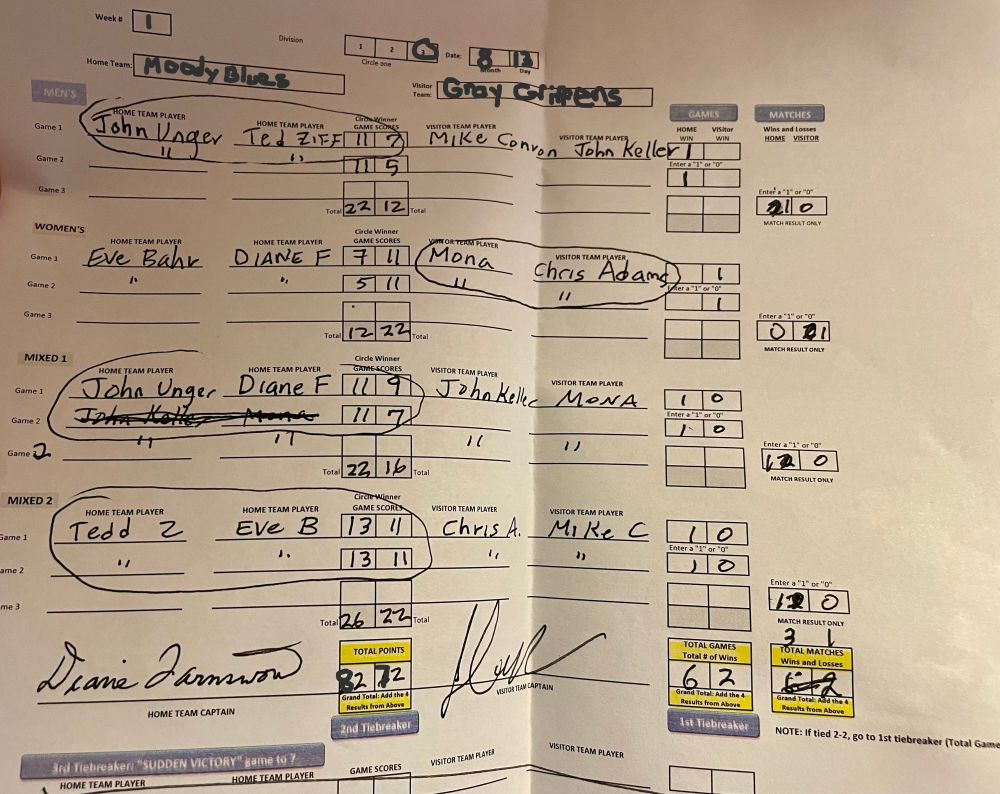 Week # 1
Division 1 2 3 Date: 8 13
Circle one Month Day
Home Team: Moody Blues Visitor Team: Gray Grippens
MEN'S GAMES MATCHES
HOME TEAM PLAYER HOME TEAM PLAYER Circle Winner GAME SCORES VISITOR TEAM PLAYER VISITOR TEAM PLAYER HOME WIN Visitor WIN Wins and Losses HOME VISITOR
Game 1 John Unger Ted ZIFF 11 7 Mike Conron John Keller 1
Enter a "1" or "0"
Game 2 " " 11 5 1
Game 3 Enter a "1" or "0"
Total 22 12 Total 1 0
MATCH RESULT ONLY
WOMEN'S
HOME TEAM PLAYER HOME TEAM PLAYER Circle Winner GAME SCORES VISITOR TEAM PLAYER VISITOR TEAM PLAYER
Game 1 Eve Bahr DIANE F 7 11 Mona Chris Adams 1
Enter a "1" or "0"
Game 2 " " 5 11 " " 1
Game 3 Enter a "1" or "0"
Total 12 22 Total 0 1
MATCH RESULT ONLY
MIXED 1
HOME TEAM PLAYER HOME TEAM PLAYER Circle Winner GAME SCORES VISITOR TEAM PLAYER
Game 1 John Unger Diane F 11 9 John Keller MONA 1 0
Enter a "1" or "0"
Game 2 John Keller Mona 11 7 1 0
" " " "
Game 2 Enter a "1" or "0"
Total 22 16 Total 1 0
MATCH RESULT ONLY
MIXED 2
HOME TEAM PLAYER HOME TEAM PLAYER Circle Winner GAME SCORES VISITOR TEAM PLAYER VISITOR TEAM PLAYER
Game 1 Tedd Z Eve B 13 11 Chris A. Mike C 1 0
Enter a "1" or "0"
ame 2 " " 13 11 " " 1 0
me 3 Enter a "1" or "0"
Total 26 22 Total 1 0
MATCH RESULT ONLY
3 1
TOTAL POINTS TOTAL GAMES TOTAL MATCHES
Total # of Wins Wins and Losses
Diane Farnswon 82 72 6 2 6 2
Grand Total: Add the 4 Results from Above Grand Total: Add the 4 Results from Above Grand Total: Add the 4 Results from Above
HOME TEAM CAPTAIN VISITOR TEAM CAPTAIN
2nd Tiebreaker 1st Tiebreaker
NOTE: If tied 2-2, go to 1st tiebreaker (Total Game
3rd Tiebreaker: "SUDDEN VICTORY" game to 7
HOME TEAM PLAYER HOME TEAM PLAYER GAME SCORES VISITOR TEAM PLAYER VISITOR TEAM PLAYER